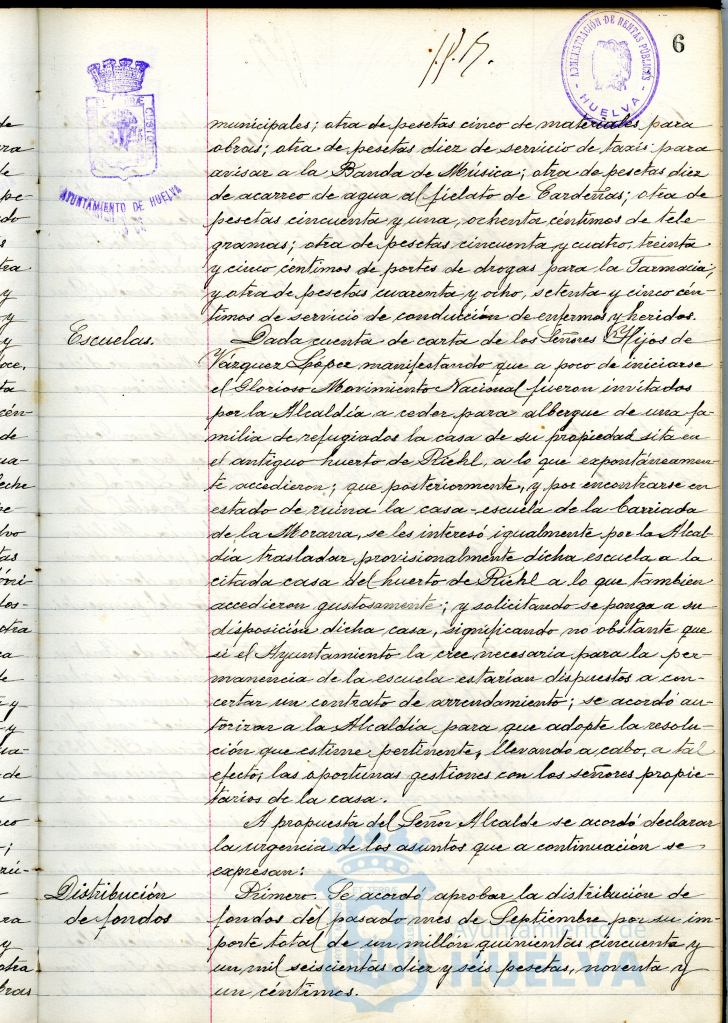 6
ADMINISTRACIÓN DE RENTAS PÚBLICAS
HUELVA
AYUNTAMIENTO DE HUELVA
municipales; otra de pesetas cinco de materiales para
obras; otra de pesetas diez de servicio de taxis para
avisar a la Banda de Música; otra de pesetas diez
de acarreo de agua al fielato de Cardeñas; otra de
pesetas cincuenta y una, ochenta céntimos de tele-
gramas; otra de pesetas cincuenta y cuatro, treinta
y cinco céntimos de portes de drogas para la Farmacia;
y otra de pesetas cuarenta y ocho, setenta y cinco cén-
timos de servicio de conducción de enfermos y heridos.
Escuelas.
Dada cuenta de carta de los Señores Hijos de
Vázquez López manifestando que a poco de iniciarse
el Glorioso Movimiento Nacional fueron invitados
por la Alcaldía a ceder para albergue de una fa-
milia de refugiados la casa de su propiedad sita en
el antiguo huerto de Riehl, a lo que expontáneamen-
te accedieron; que posteriormente, y por encontrarse en
estado de ruina la casa-escuela de la Barriada
de la Morana, se les interesó igualmente por la Alcal-
día trasladar provisionalmente dicha escuela a la
citada casa del huerto de Riehl a lo que también
accedieron gustosamente; y solicitando se ponga a su
disposición dicha casa, significando no obstante que
si el Ayuntamiento la cree necesaria para la per-
manencia de la escuela estarían dispuestos a con-
certar un contrato de arrendamiento; se acordó au-
torizar a la Alcaldía para que adopte la resolu-
ción que estime pertinente, llevando a cabo, a tal
efecto, las oportunas gestiones con los señores propie-
tarios de la casa.
A propuesta del Señor Alcalde se acordó declarar
la urgencia de los asuntos que a continuación se
expresan:
Distribución
de fondos
Primero. Se acordó aprobar la distribución de
fondos del pasado mes de Septiembre por su im-
porte total de un millón quinientas cincuenta y
un mil seiscientas diez y seis pesetas, noventa y
un céntimos.
Ayuntamiento de
HUELVA